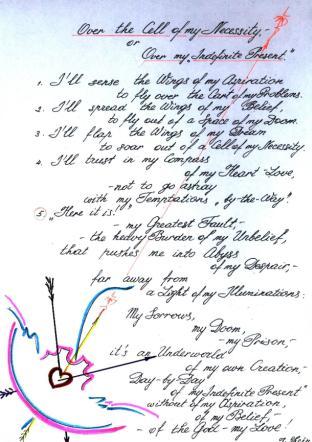 Over the Cell of my Necessity,-
or
Over my „Indefinite Present."
1. I'll sense the Wings of my Aspiration
to fly over the Cart of my Problems.
2. I'll spread the Wings of my Belief,
to fly out of a Space of my Doom.
3. I'll flap the Wings of my Dream
to soar out of a Cell of my Necessity.
4. I'll trust in my Compass
of my Heart-Love,
-not to go astray
with my „Temptations „by-the-Way".
5. „Here it is!"
- my Greatest Fault,-
- the heavy Burden of my Unbelief,
that pushes me into Abyss
of my Despair,-
far away from
a Light of my Illuminations:
My Sorrows,
my Doom,
-my Prison,-
it's an Underworld
of my own Creation,-
Day-by-Day
of my „Indefinite Present"
without by my Aspiration,
of my Belief,-
- of the God-my Love!